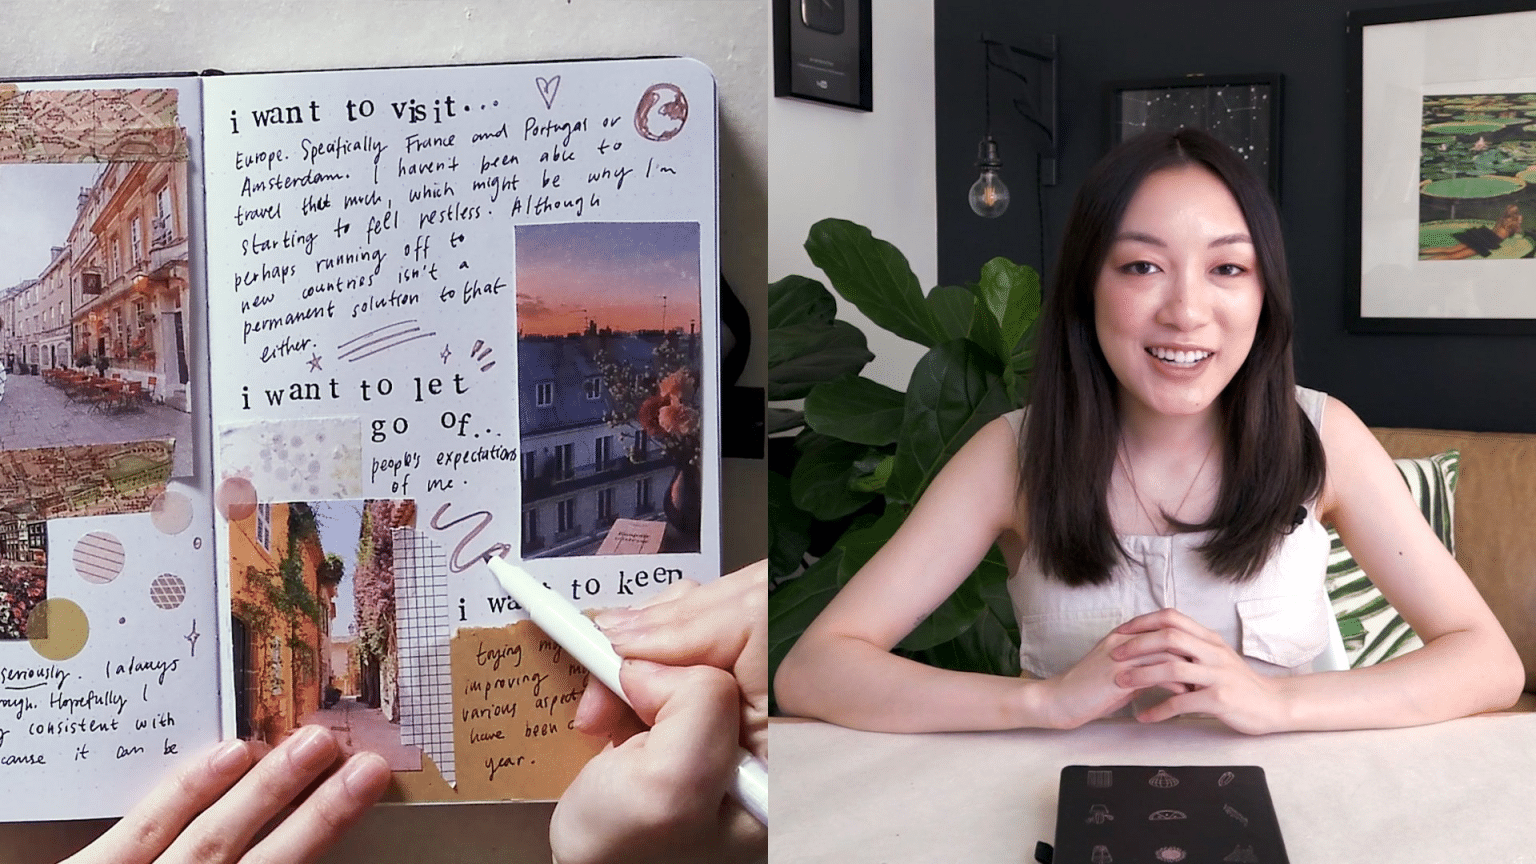 i want to visit...
Europe. Specifically France and Portugal or
Amsterdam. I haven't been able to
travel that much, which might be why I'm
starting to fell restless. Although
perhaps running off to
new countries isn't a
permanent solution to that
either.
i want to let
go of...
people's expectations
of me.
i to keep
trying my
improving
various
have been
year.
seriously. I always
Hopefully I
consistent with
it can be